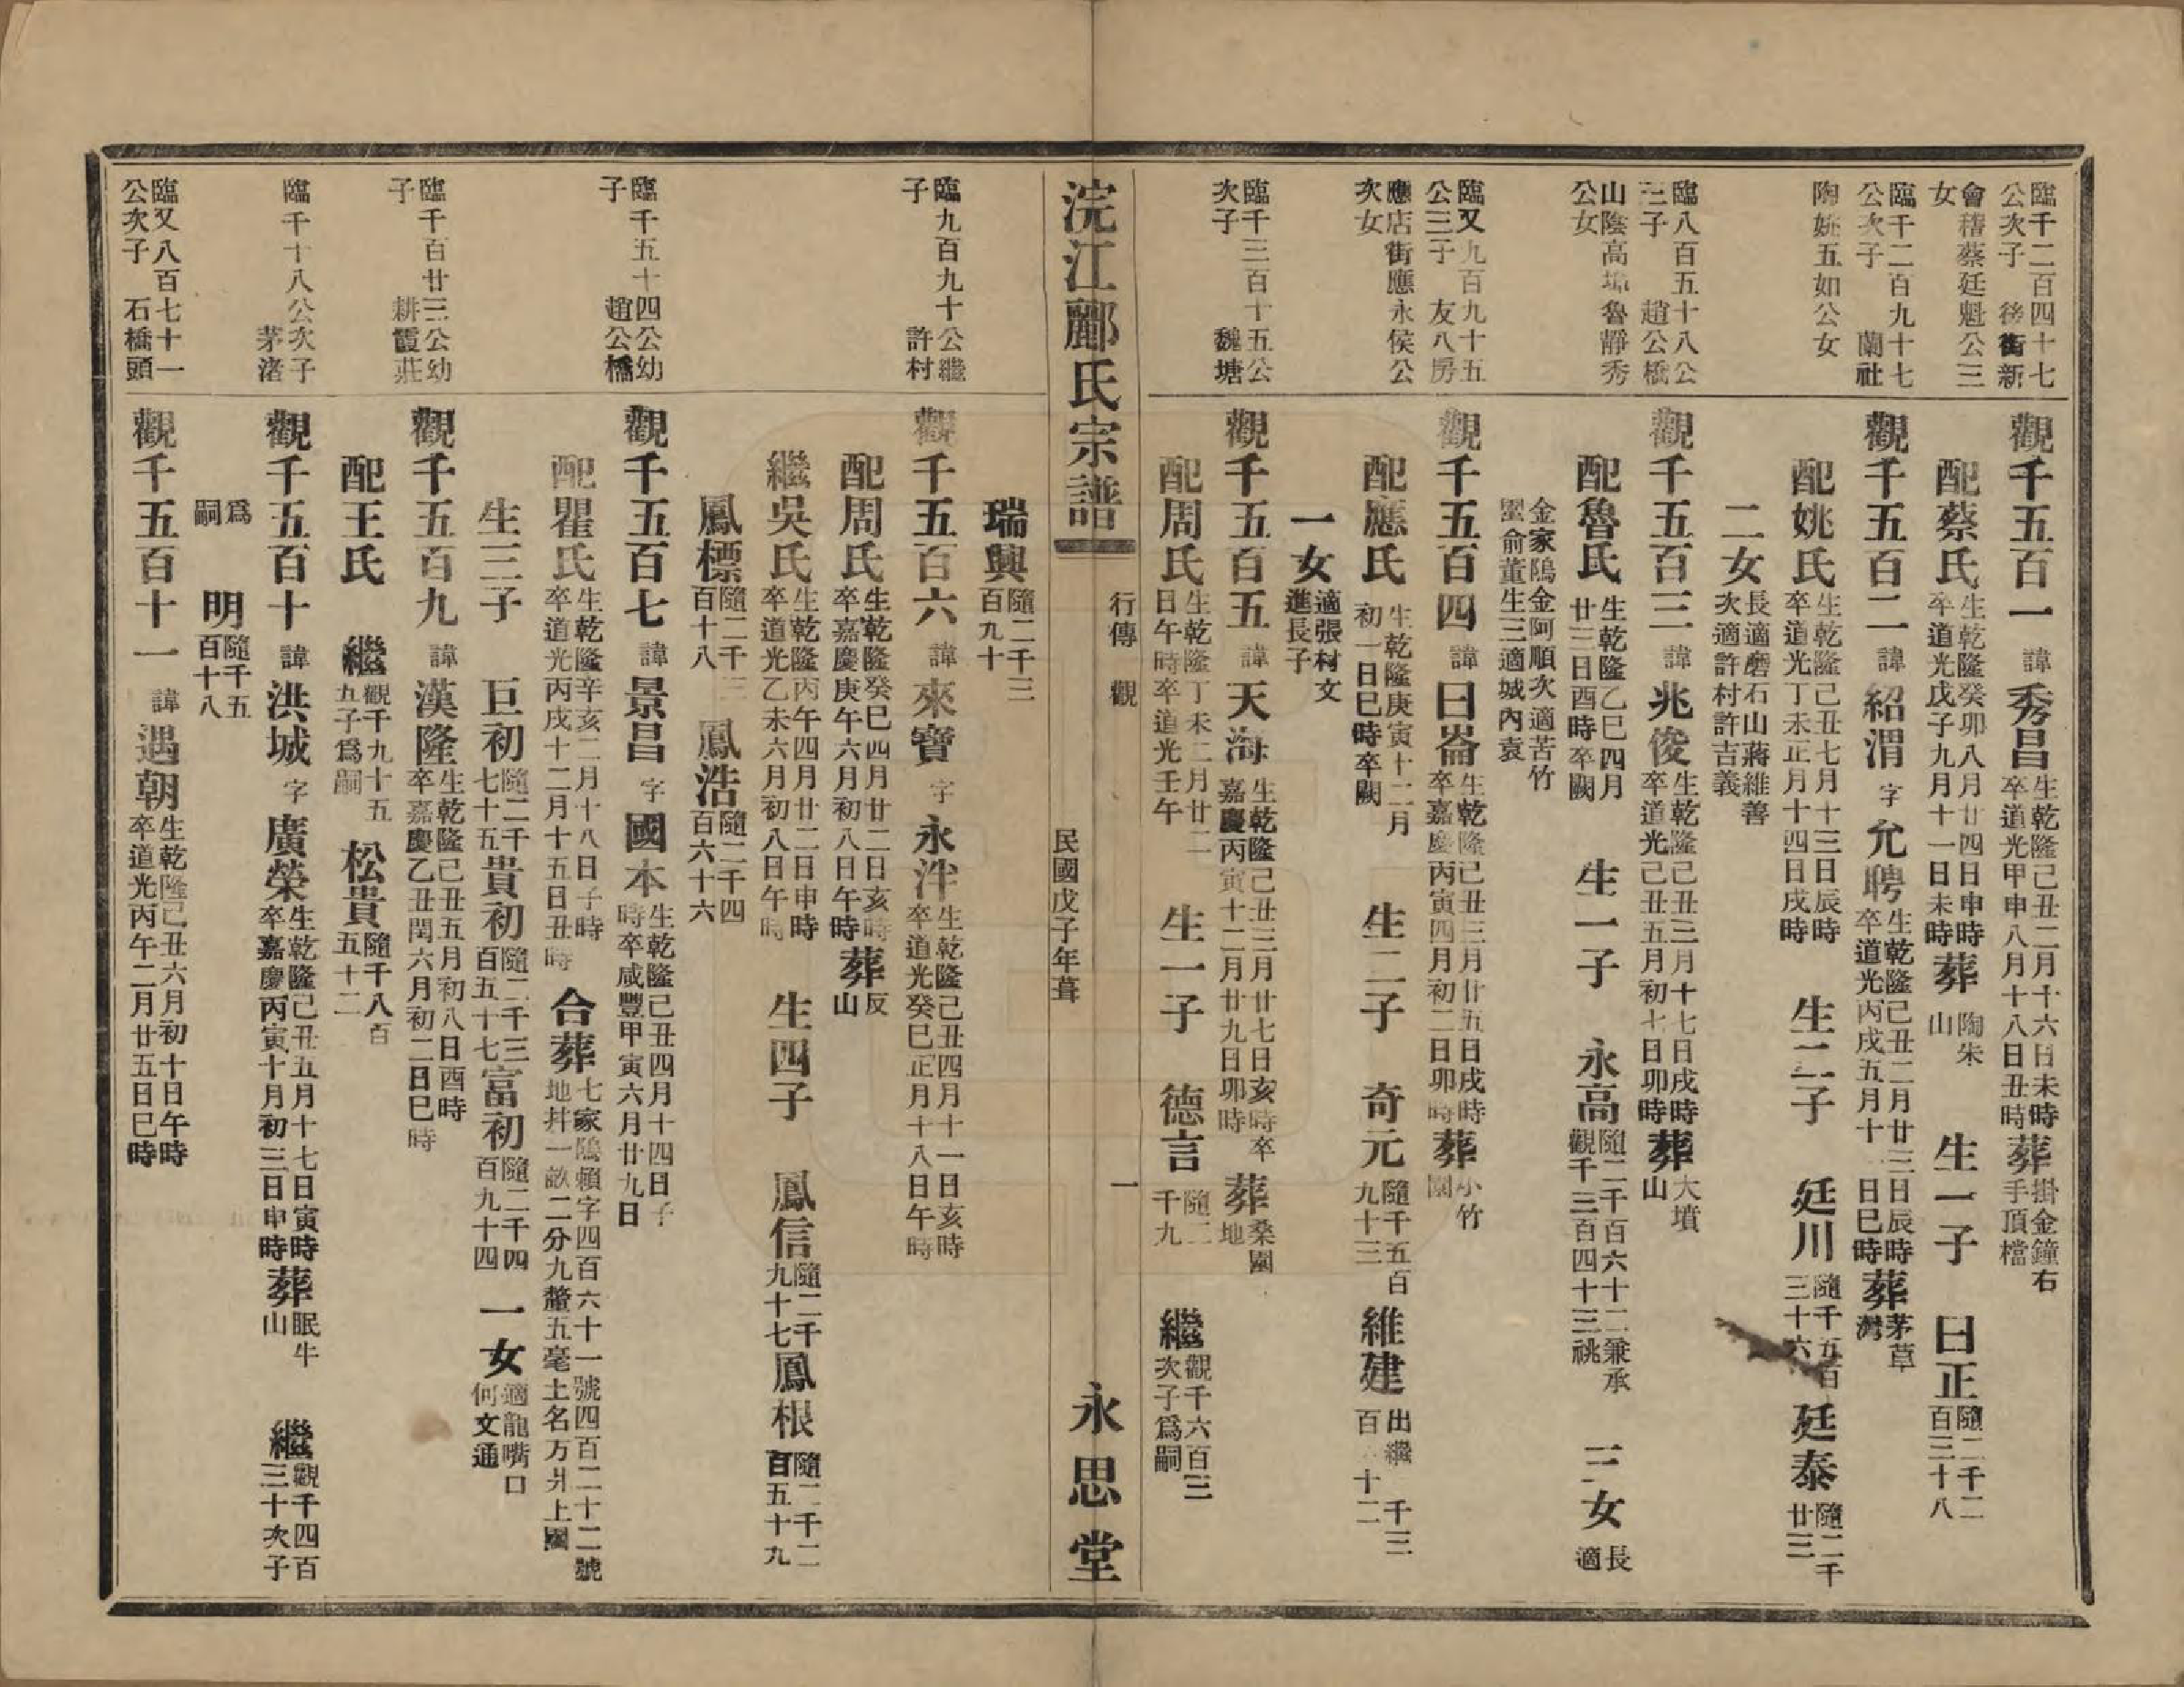 臨千二百四十七公次子　後街新
觀千五百一諱秀昌生乾隆己丑二月十六日未時卒道光甲申八月十八日丑時葬掛金鐘右手頂檔
會稽蔡廷魁公三女
配蔡氏生乾隆癸卯八月廿四日申時卒道光戊子九月十一日未時葬陶朱山　生一子　日正隨二千二百三十八
臨千二百九十七公次子　蘭社
觀千五百二諱紹渭字允聘生乾隆己丑二月廿三日辰時卒道光丙戌五月十一日巳時葬茅草灣
陶姚五如公女
配姚氏生乾隆己丑七月十三日辰時卒道光丁未正月十四日戌時　生二子　廷川隨千五百三十六　廷泰隨二千廿三
二女長適磨石山蔣維善次適許村許吉義
臨八百五十八公三子　趙公橋
觀千五百三諱兆俊生乾隆己丑三月十七日戌時卒道光己丑五月初七日卯時葬大墳山
山陰高塢魯靜秀公女
配魯氏生乾隆乙巳四月廿三日酉時卒闕　生一子　永高隨二千百六十二兼承觀千三百四十三祧　三女長適
金家隝金阿順次適苦竹壄俞董生三適城內袁
臨又九百九十五公三子　友八房
觀千五百四諱日崙生乾隆己丑三月廿五日戌時卒嘉慶丙寅四月初二日卯時葬小竹園
應店街應永侯公次女
配應氏生乾隆庚寅十二月初一日巳時卒闕　生二子　奇元隨千五百九十三　維建出繼　千三百　十二
一女適張村文進長子
臨千三百十五公次子　魏塘
觀千五百五諱天海生乾隆己丑三月廿七日亥時卒嘉慶丙寅十二月廿九日卯時　葬桑園地
配周氏生乾隆丁未二月廿二日午時卒道光壬午　生一子　德言隨二千九　繼觀千六百三次子爲嗣
浣江酈氏宗譜　行傳　觀　民國戊子年葺　一　永思堂
瑞興隨二千三百九十
臨九百九十公繼子　許村
觀千五百六諱來寶字永泮生乾隆己丑四月十一日亥時卒道光癸巳正月十八日午時
配周氏生乾隆癸巳四月廿二日亥時卒嘉慶庚午六月初八日午時葬反山
繼吳氏生乾隆丙午四月廿二日申時卒道光乙未六月初八日午時　生四子　鳳信隨二千九十七鳳根隨二千二百五十九
鳳標隨二千三百十八　鳳浩隨二千四百六十六
臨千五十四公幼子　趙公橋
觀千五百七諱景昌字國本生乾隆己丑四月十四日子時卒咸豐甲寅六月廿九日
配瞿氏生乾隆辛亥二月十八日子時卒道光丙戌十二月十五日丑時　合葬七家隝賴字四百六十一號四百二十二號地井一畝二分九釐五毫土名方爿上園
生三子　巨初隨二千七十五貴初隨二千三百五十七富初隨二千四百九十四　一女適龍嘴口何文通
臨千百廿三公幼子　耕霞莊
觀千五百九諱漢隆生乾隆己丑五月初八日酉時卒嘉慶乙丑閏六月初二日巳時
配王氏　繼觀千九十五五子爲嗣　松貴隨千八百五十二
臨千十八公次子　茅渚
觀千五百十諱洪城字廣榮生乾隆己丑五月十七日寅時卒嘉慶丙寅十月初三日申時葬眠牛山　繼觀千四百三十次子
爲嗣　明隨千五百十八
臨又八百七十一公次子　石橋頭
觀千五百十一諱遇朝生乾隆己丑六月初十日午時卒道光丙午二月廿五日巳時